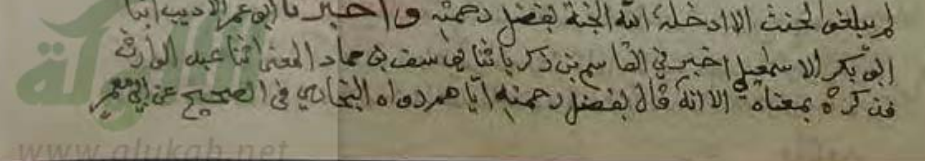 لم يبلغوا الحنث الا ادخله الله الجنة بفضل رحمته واخبرنا ابو عمر الاديب ابنا
ابو بكر الاسمعيلي اخبرني القاسم بن زكريا ثنا يوسف بن حماد المعنى ثنا عبد الوارث
فذكره بمعناه الا انه قال بفضل رحمته اياهم رواه البخاري في الصحيح عن ابي معمر
الألوكة
www.alukah.net